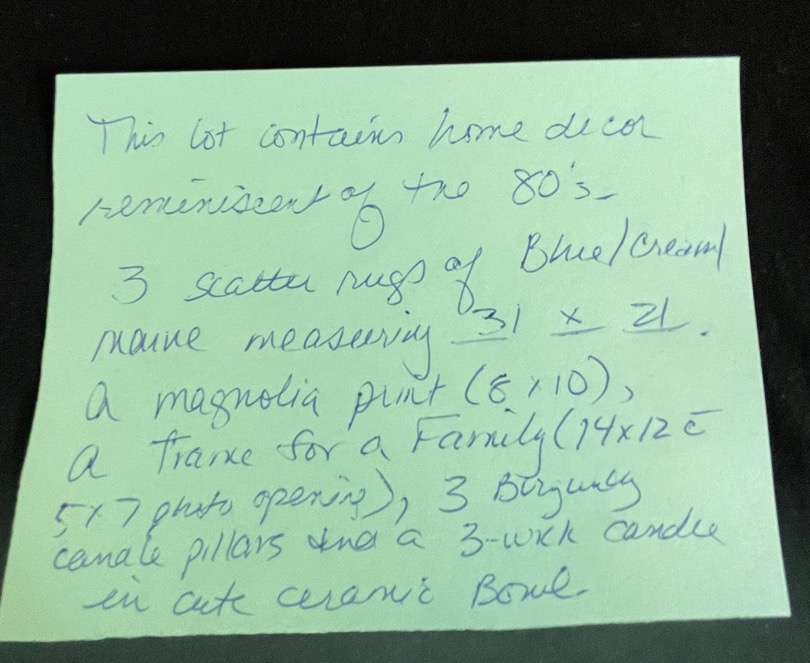 This lot contains home decor
reminiscent of the 80's_
3 scatter rugs of Blue/Cream/
mauve measuring 31 x 21.
A magnolia print (8x10),
a frame for a Family (14x12 c̄
5x7 photo opening), 3 Burgundy
candle pillars and a 3-wick candle
in cute ceramic Bowl.